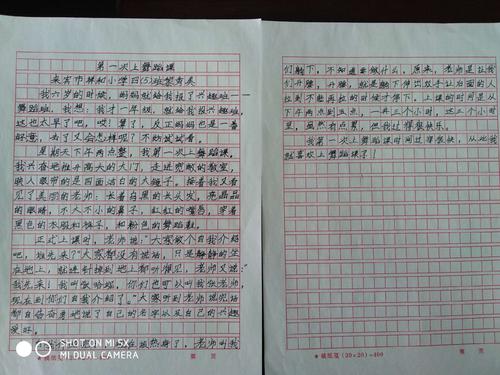 第一次上舞蹈课
来宾市祥和小学四(5)班
我六岁的时候，妈妈就给我报了兴趣班—
舞蹈班。我想：我才一年级，就给我报兴趣班，
这也太早了吧，哎！算了，反正妈妈也是一番
好意，去了又会怎样呢？不妨试试看。
星期天下午两点整，我第一次上舞蹈课，
我兴奋地推开高大的大门，走进宽敞的教室，
映入眼帘的是四面洁白的大镜子。接着我又看
见了美丽的老师：长着白黑的长头发，亮晶晶
的眼睛，不大不小的鼻子，红红的嘴唇，穿着
黑色的衣服和裤子，和粉色的舞蹈鞋。
正式上课时，老师说：“大家做个自我介绍
吧，谁先来？”大家都没有说话，只是静静的坐
在地上，就连针掉到地上都听得见，老师又说：“
我先来！我叫做哈瑶，你们也可以叫我做老师，
现在到你们自我介绍了。”大家听到老师说完话
都自告奋勇地说了自己的名字以及自己的兴趣
爱好。
热身了，老师叫我
们躺下，不知道要做什么，原来，老师是让我
们开腿，开腿，就是躺下伸出双手让后面的人
拉到不能再拉的时候才停下，上课的时间是从
下午两点到五点，一共三个小时，这三个小时
里，虽然有点累，但我过得很快乐。
我第一次上舞蹈课时间过得很快，从此我
就喜欢上舞蹈课了！
★稿纸笺(20×20)=400 第 页
★稿纸笺(20×20)=400 第 页
SHOT ON MI 5X
MI DUAL CAMERA